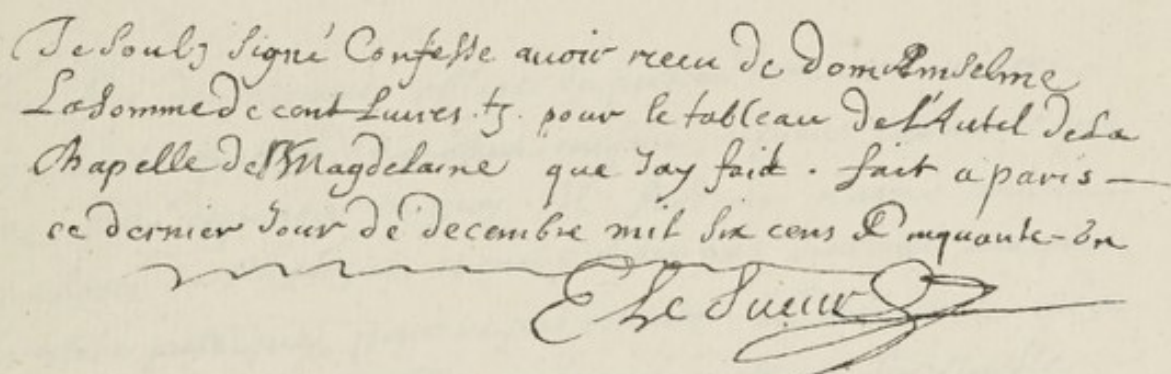 Je soub signé Confesse auoir receu de dom Anselme
La somme de cent Liures .tz. pour le tableau de L'Autel de La
Chapelle de Magdelaine que Jay faict . fait a paris —
ce dernier Jour de decembre mil six cens Cinquante-un
E Le Sueur